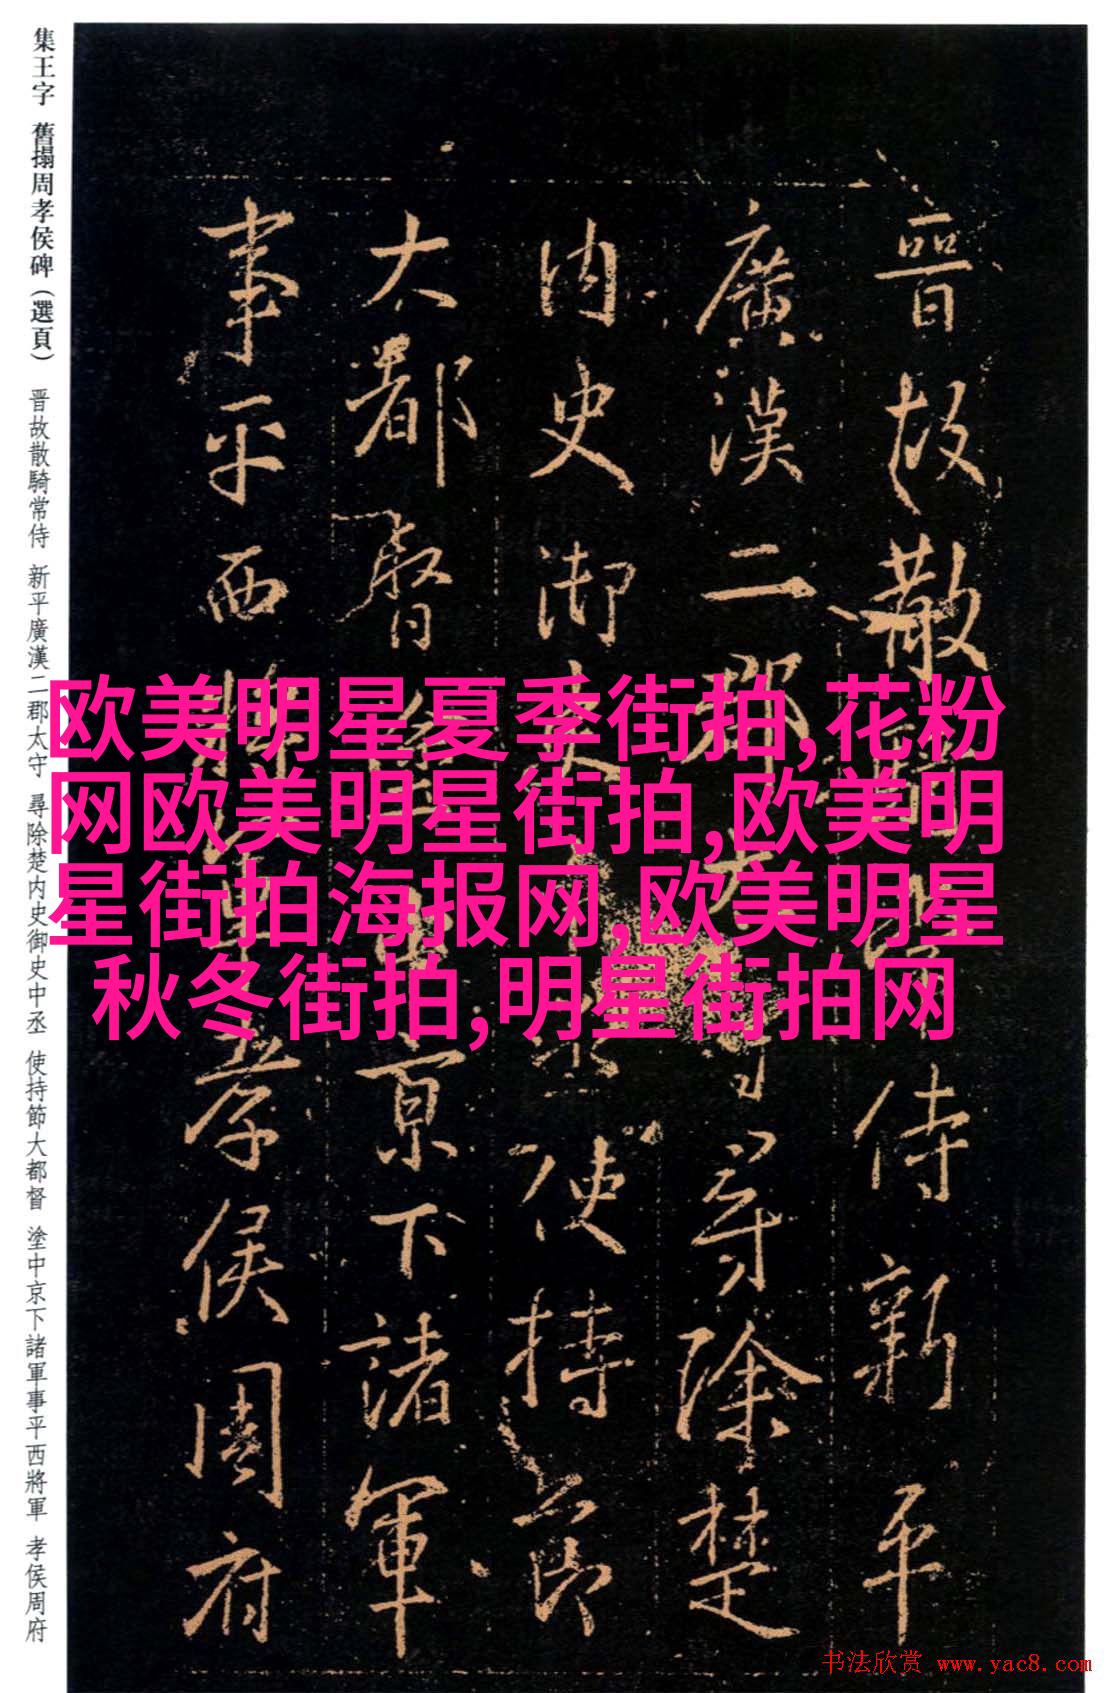 晉故散騎常侍新平
廣漢二郡太守尋除楚
内史御史中丞使持節
大都督塗中京下諸軍
事平西將軍孝侯周府
集王字 舊搨周孝侯碑（選頁） 晋故散騎常侍 新平廣漢二郡太守 尋除楚内史御史中丞 使持節大都督 塗中京下諸軍事平西將軍 孝侯周府
欧美明星夏季街拍,花粉
网欧美明星街拍,欧美明
星街拍海报网,欧美明星
秋冬街拍,明星街拍网
书法欣赏 www.yac8.com